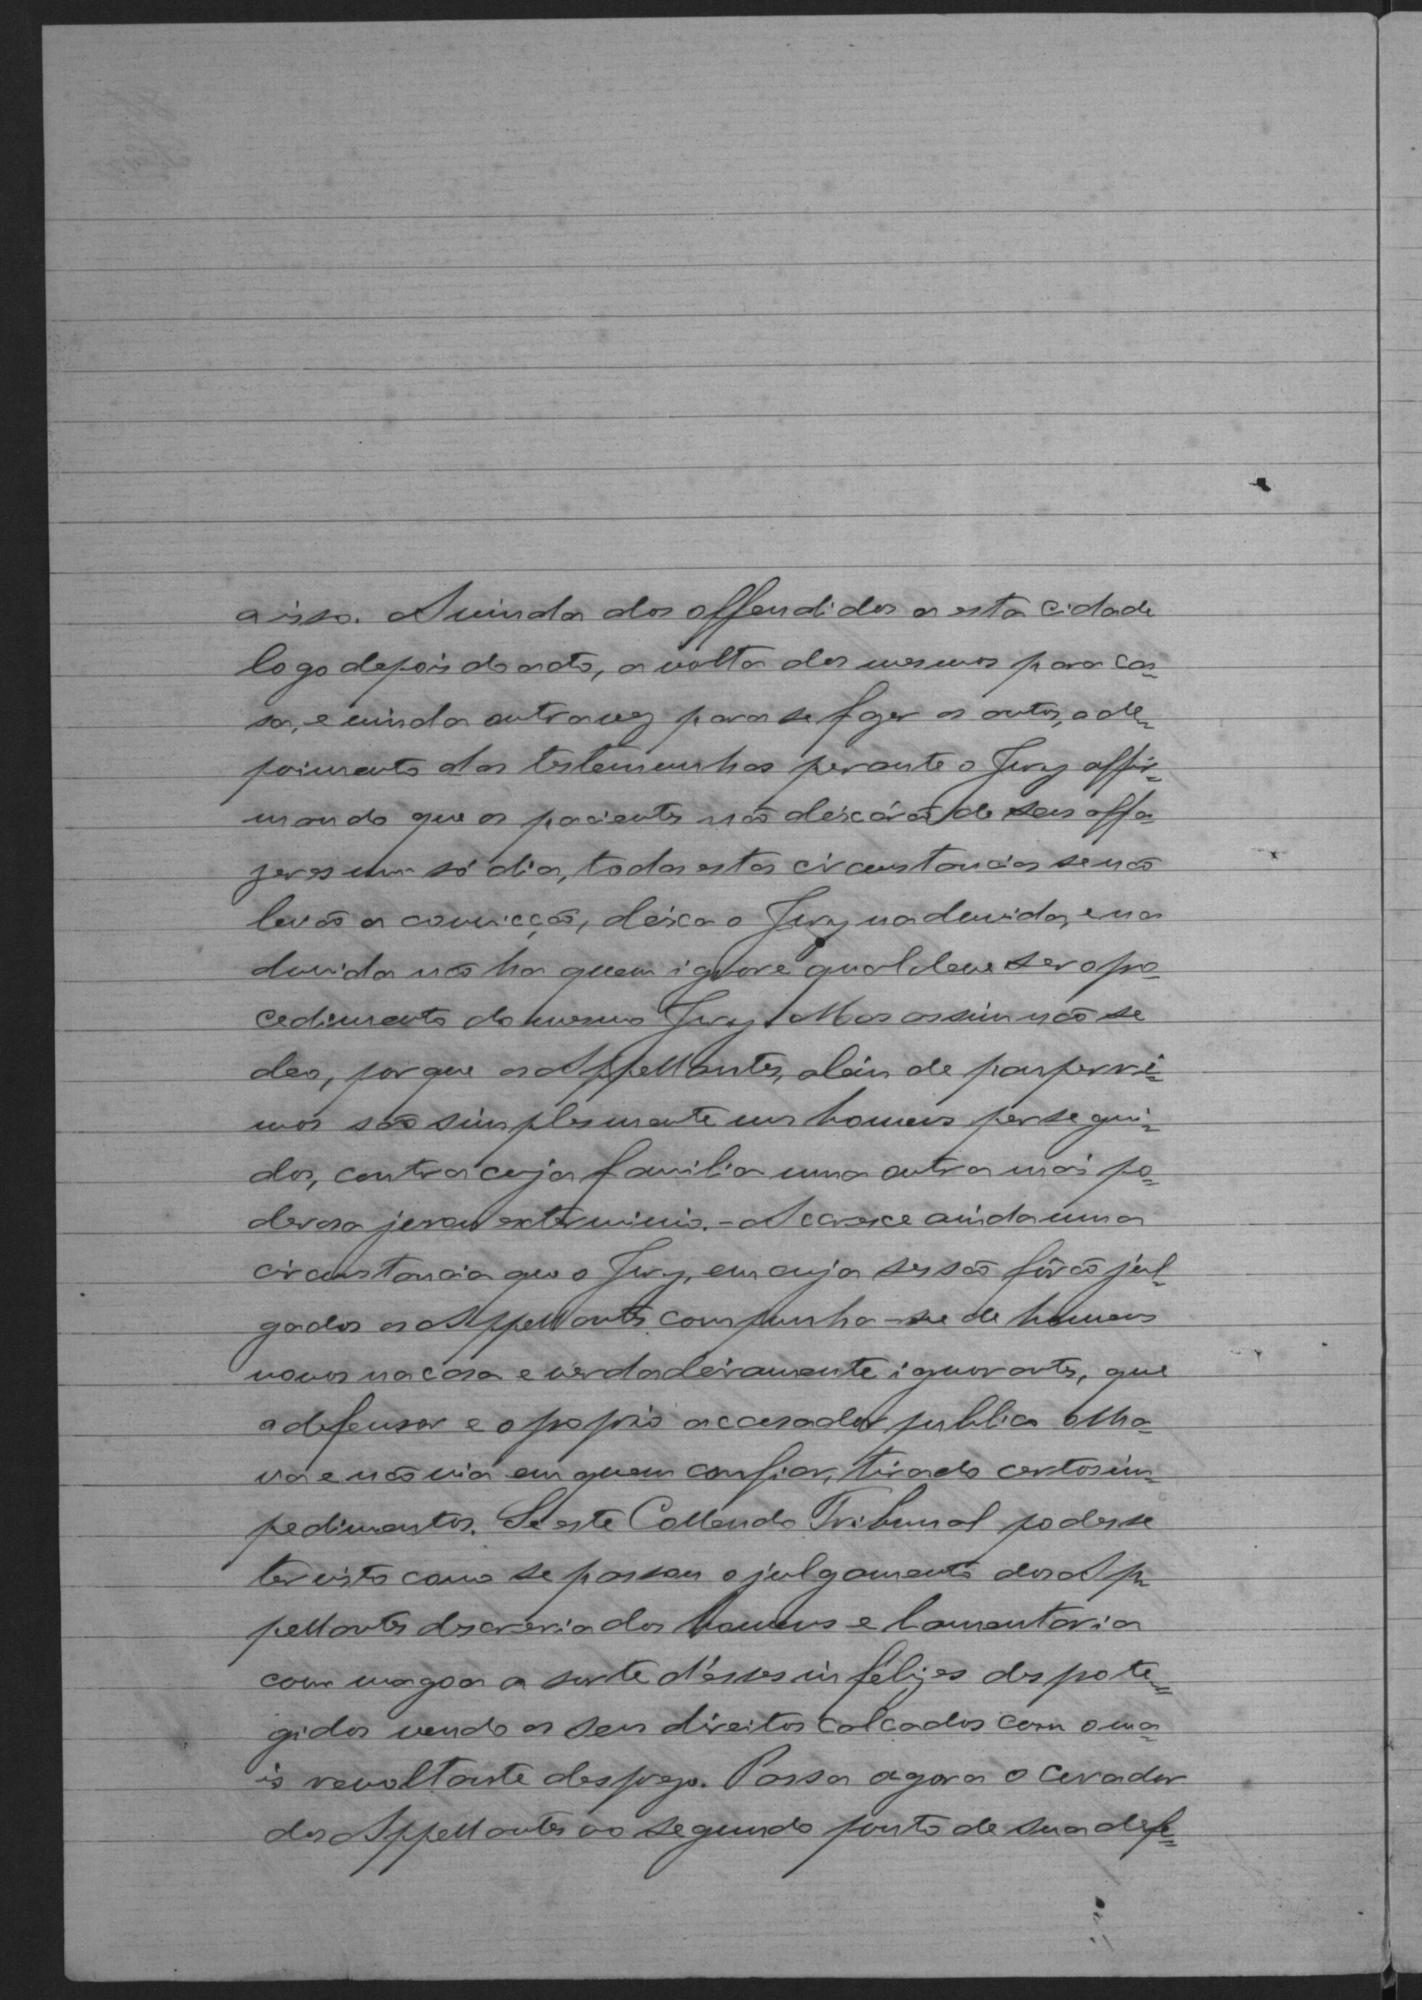 a isso. A vinda dos offendidos a esta cidade
logo depois do acto, a volta dos mesmos para ca=
sa, e vinda outra vez para se fazer os autos, o de=
poimento das testemunhas perante o Jury affir=
mando que os pacientes não deixárão de seus affa
zeres um só dia, todas estas circunstancias se não
levão a convicção, deixa o Jury na duvida, e na
duvida não ha quem ignore qual deve ser o pro=
cedimento do mesmo Jury. Mas assim não se
deo, porque os Appellantes, além de pauperri=
mos são simplesmente uns homens persegui=
dos, contra cuja familia uma outra mais po=
derosa jurou exterminio. - Accresce ainda uma
circunstancia que o Jury, em cuja sessão fôrão jul=
gados os Appellantes compunha-se de homens
novos na casa e verdadeiramente ignorantes, que
o defensor e o proprio accusador publico olha=
va e não via em quem confiar, tirado certos im=
pedimentos. Se este Collendo Tribunal podesse
ter visto como se passou o julgamento dos Ap=
pellantes descreria dos homens e lamentaria
com magoa a sorte d'esses infelizes desprote=
gidos vendo os seus direitos calcados com o ma=
is revoltante desprezo. Passa agora o Curador
dos Appellantes ao segundo ponto de sua defe=